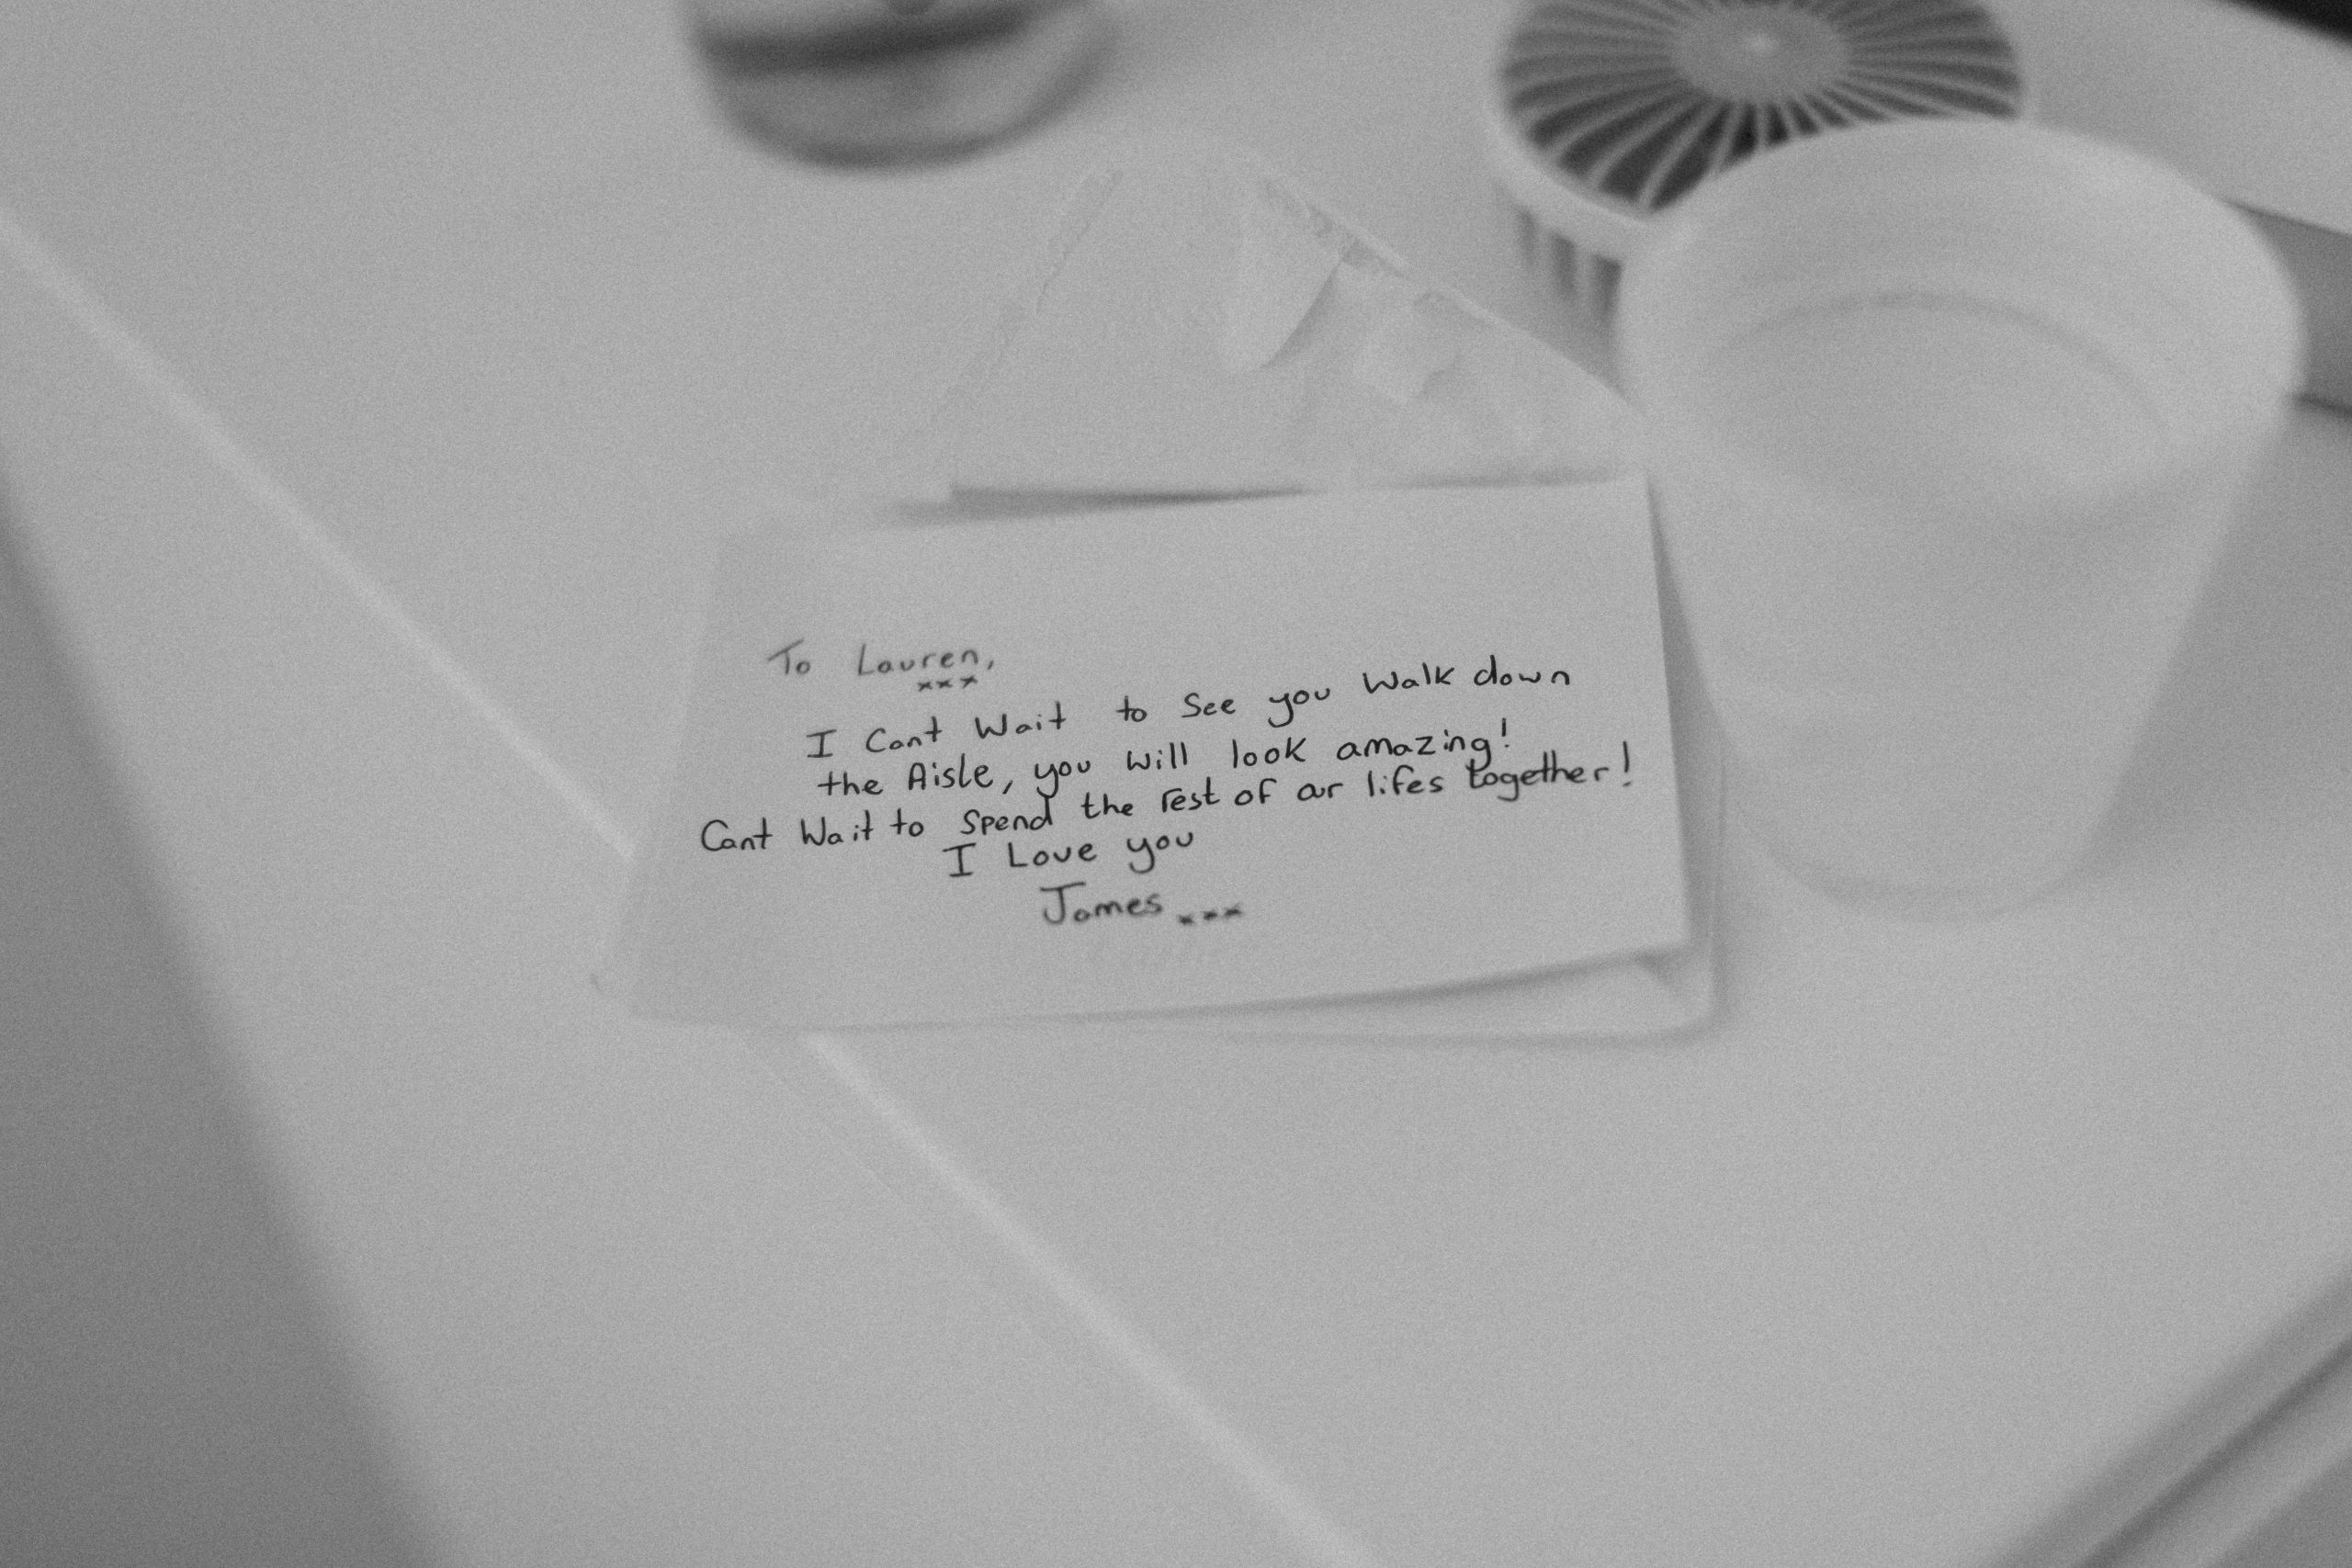 To Lauren,
xxx
I Cant Wait to See you Walk down
the Aisle, you will look amazing!
Cant Wait to Spend the rest of our lifes together!
I Love you
James xxx